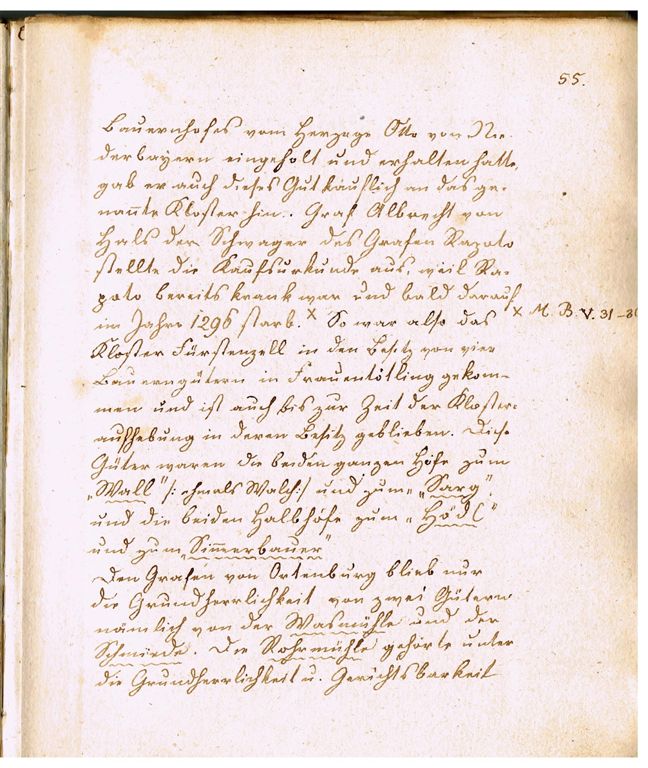 55.
Bauernhofes vom Herzoge Otto von Nie-
derbayern eingeholt und erhalten hatte,
gab er auch dieses Gut käuflich an das ge-
nannte Kloster hin. Graf Albrecht von
Hals der Schwager des Grafen Rapoto
stellte die Kaufsurkunde aus, weil Ra-
poto bereits krank war und bald darauf
im Jahre 1296 starb. x So war also das
x M. B. V. 31-
Kloster Fürstenzell in den Besitz von vier
Bauerngütern in Frauentötling gekom-
men und ist auch bis zur Zeit der Kloster-
aufhebung in deren Besitz geblieben. Diese
Güter waren die beiden ganzen Höfe zum
„Wall" /: ehmals Walch:/ und zum „Sarg",
und die beiden Halbhöfe zum „Hödl"
und zum „Simmerbauer"
Den Grafen von Ortenburg blieb nur
die Grundherrlichkeit von zwei Gütern
nämlich von der Wasmühle und der
Schmiede. Die Rohrmühle gehörte unter
die Grundherrlichkeit u. Gerichtsbarkeit